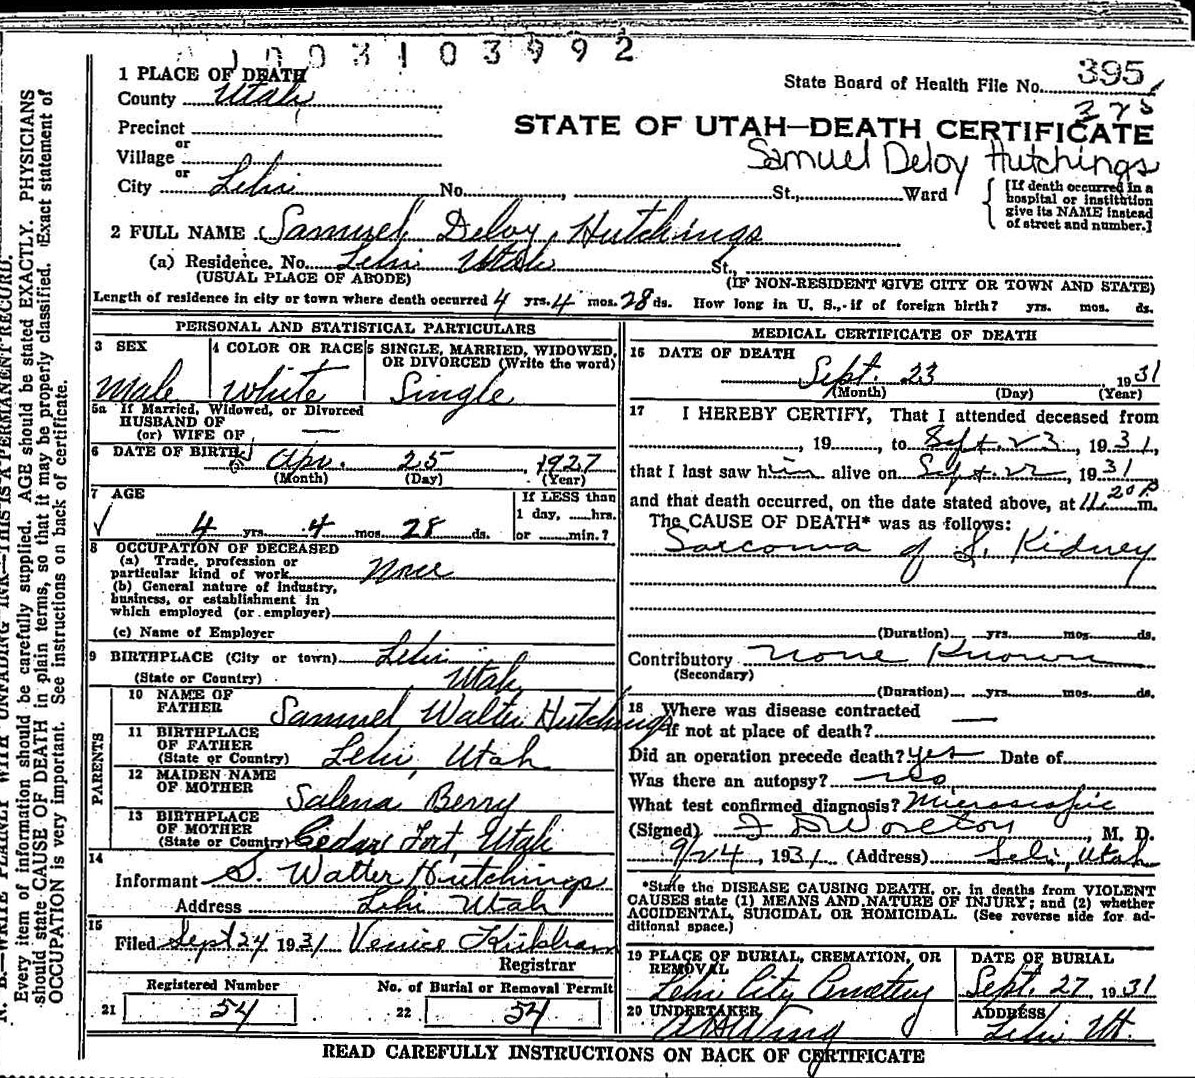 1003103992
1 PLACE OF DEATH
County Utah
State Board of Health File No. 395
Precinct
or
Village
or
City Lehi No. St., Ward
STATE OF UTAH—DEATH CERTIFICATE
Samuel Deloy Hutchings
[If death occurred in a
hospital or institution
give its NAME instead
of street and number.]
2 FULL NAME Samuel Deloy Hutchings
(a) Residence. No. Lehi Utah St.,
(USUAL PLACE OF ABODE) (IF NON-RESIDENT GIVE CITY OR TOWN AND STATE)
Length of residence in city or town where death occurred 4 yrs. 4 mos. 28 ds. How long in U. S., if of foreign birth? yrs. mos. ds.
PERSONAL AND STATISTICAL PARTICULARS
3 SEX
Male
4 COLOR OR RACE
White
5 SINGLE, MARRIED, WIDOWED,
OR DIVORCED (Write the word)
Single
5a If Married, Widowed, or Divorced
HUSBAND OF
(or) WIFE OF —
6 DATE OF BIRTH Apr. 25, 1927
(Month) (Day) (Year)
7 AGE
4 yrs. 4 mos. 28 ds.
If LESS than
1 day, hrs.
or min.?
8 OCCUPATION OF DECEASED
(a) Trade, profession or
particular kind of work None
(b) General nature of industry,
business, or establishment in
which employed (or employer)
(c) Name of Employer
9 BIRTHPLACE (City or town) Lehi
(State or Country) Utah
PARENTS
10 NAME OF
FATHER Samuel Walter Hutchings
11 BIRTHPLACE
OF FATHER
(State or Country) Lehi, Utah
12 MAIDEN NAME
OF MOTHER Salena Berry
13 BIRTHPLACE
OF MOTHER
(State or Country) Cedar Fort, Utah
14
Informant S. Walter Hutchings
Address Lehi Utah
15
Filed Sept 24 1931 Venice Kirkham
Registrar
Registered Number
21 54
No. of Burial or Removal Permit
22 54
MEDICAL CERTIFICATE OF DEATH
16 DATE OF DEATH
Sept. 23 1931
(Month) (Day) (Year)
17 I HEREBY CERTIFY, That I attended deceased from
, 19 , to Sept. 23, 1931,
that I last saw him alive on Sept 22, 1931
and that death occurred, on the date stated above, at 11.20 P m.
The CAUSE OF DEATH* was as follows:
Sarcoma of L. Kidney
(Duration) yrs. mos. ds.
Contributory None Known
(Secondary)
(Duration) yrs. mos. ds.
18 Where was disease contracted —
if not at place of death?
Did an operation precede death? yes Date of
Was there an autopsy? no
What test confirmed diagnosis? Microscopic
(Signed) , M. D.
9/24, 1931 (Address) Lehi, Utah
*State the DISEASE CAUSING DEATH, or, in deaths from VIOLENT
CAUSES state (1) MEANS AND NATURE OF INJURY; and (2) whether
ACCIDENTAL, SUICIDAL OR HOMICIDAL. (See reverse side for ad-
ditional space.)
19 PLACE OF BURIAL, CREMATION, OR
REMOVAL
Lehi City Cemetery
DATE OF BURIAL
Sept. 27 1931
20 UNDERTAKER
A H Wing
ADDRESS
Lehi Ut.
READ CAREFULLY INSTRUCTIONS ON BACK OF CERTIFICATE
N. B.—WRITE PLAINLY WITH UNFADING INK—THIS IS A PERMANENT RECORD.
Every item of information should be carefully supplied. AGE should be stated EXACTLY. PHYSICIANS
should state CAUSE OF DEATH in plain terms, so that it may be properly classified. Exact statement of
OCCUPATION is very important. See instructions on back of certificate.